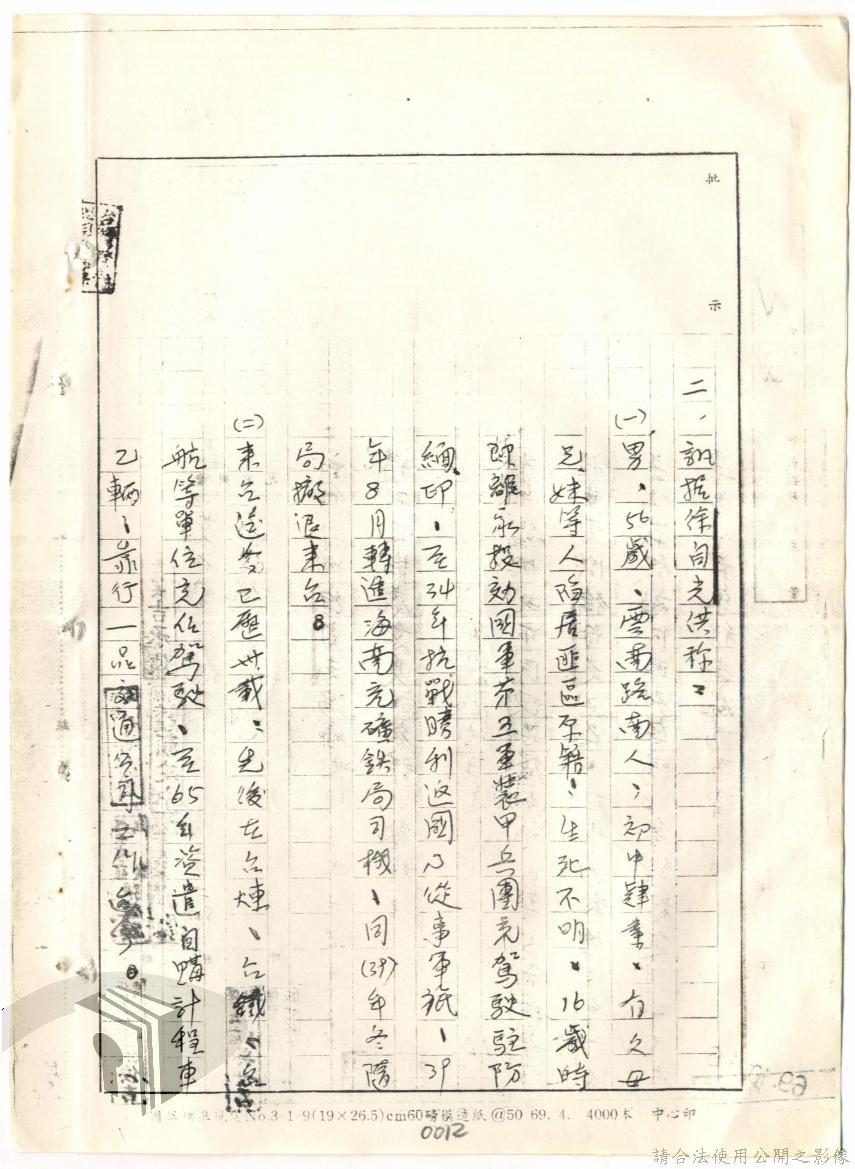 批示
二、訊據徐自光供稱:
(一)男、56歲、雲南路南人、初中肄業、有父母
兄妹等人陷居匪區原籍、生死不明。16歲時
即投効國軍第五軍裝甲兵團充駕駛駐防
緬印、至34年抗戰勝利返國仍從事軍職、39
年8月轉進海南充礦鉄局司機、同(39)年冬隨
局撤退来台。
(二)来台迄今已歷卅載、先後在台煉、台鐵、台
航等單位充任駕駛、至65年資遣自購計程車
乙輛、靠行一品交通公司工作迄今。
No.3-1-9(19×26.5)cm60磅模造紙@50 69. 4. 4000本 中心印
0012
請合法使用公開之影像